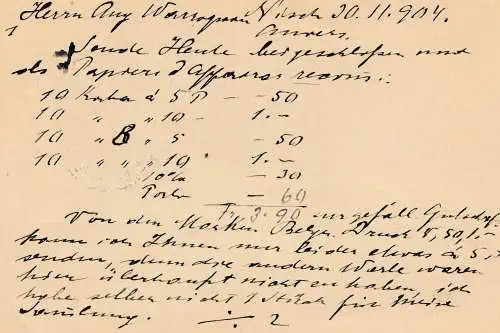 Herrn Aug Nisch 30.11.904.
Anvers.
Sende Heute beigeschlossen und
als Papiers d'affaires recom.:
10 Karten à 5 P — -50
10 " " 10 - 1.-
10 " 8 " 5 -50
10 " " " 10 1.-
10% - 30
Porto - 60
Fr. 3.90 urgefäll. Gutschrf.
Von den Marken Belg. Druck
kann ich Ihnen nur leider etwas à 5
senden, denn die andern Werte waren
hier überhaupt nicht zu haben, ich
habe selber nicht 1 Stück für meine
Samlung.